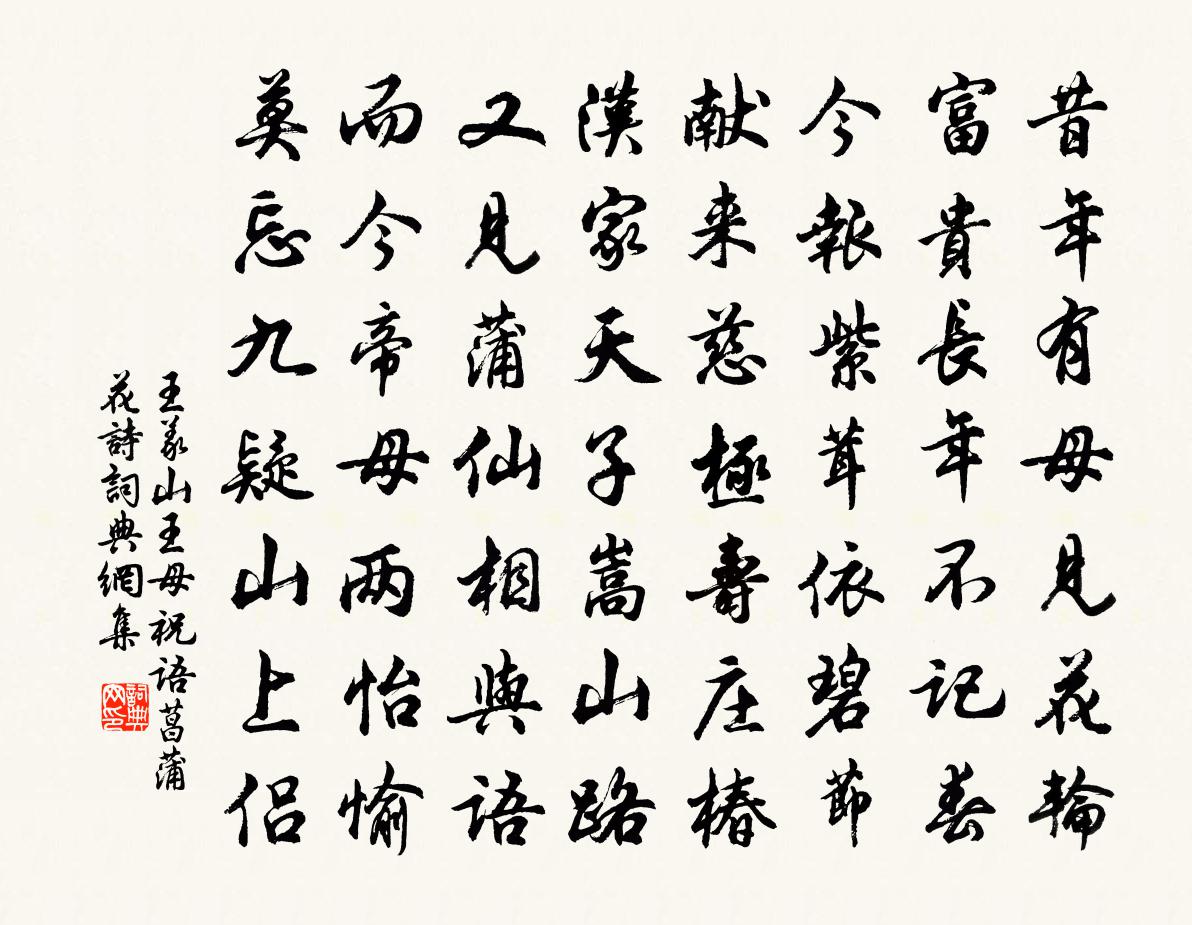 昔年有母見花輪
富貴長年不記春
今報紫茸依碧節
献来慈極壽庄椿
漢家天子嵩山路
又見蒲仙相與語
而今帝母两怡愉
莫忘九疑山上侣
王義山王母祝语菖蒲
花詩詞典網集
詞典
网印